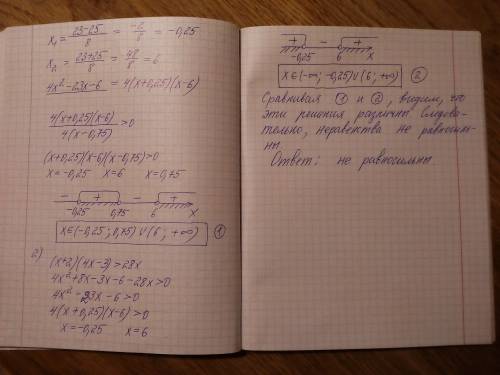 x₁ = (23-25)/8 = -2/8 = -0,25
x₂ = (23+25)/8 = 48/8 = 6
4x²-23x-6 = 4(x+0,25)(x-6)
4(x+0,25)(x-6)/4(x-0,75) >0
(x+0,25)(x-6)(x-0,75)>0
x=-0,25 x=6 x=0,75
- + - +
-0,25 0,75 6 x
x∈(-0,25; 0,75)∪(6; +∞) ①
2) (x+2)(4x-3)>28x
4x²+8x-3x-6-28x>0
4x²-23x-6>0
4(x+0,25)(x-6)>0
x=-0,25 x=6
+ - +
-0,25 6 x
x∈(-∞; -0,25)∪(6; +∞) ②
Сравнивая ① и ②, видим, что
эти решения различны. Следова-
тельно, неравенства не равносиль-
ны.
Ответ: не равносильны